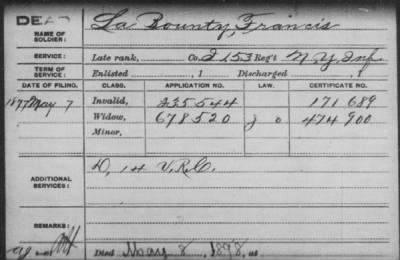 DEAD
NAME OF SOLDIER: La Bounty, Francis
SERVICE: Late rank, Co. I 153 Reg't N.Y. Inf
TERM OF SERVICE: Enlisted , 1 Discharged , 1
DATE OF FILING. CLASS. APPLICATION NO. LAW. CERTIFICATE NO.
Invalid, 235544 171689
May 7 Widow, 678520 474900
Minor,
ADDITIONAL SERVICES: D, 14 V.R.C.
REMARKS:
Died May 8, 1898, at